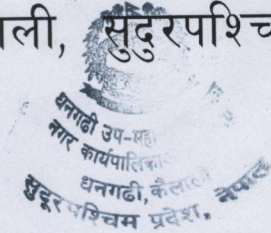 ली, सुदुरपश्चि
धनगढी उप-महा
नगर कार्यपालिका
धनगढी, कैलाली
सुदूरपश्चिम प्रदेश, नेपाल